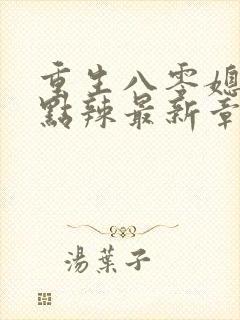 重生八零媳
點辣最新章
湯葉子